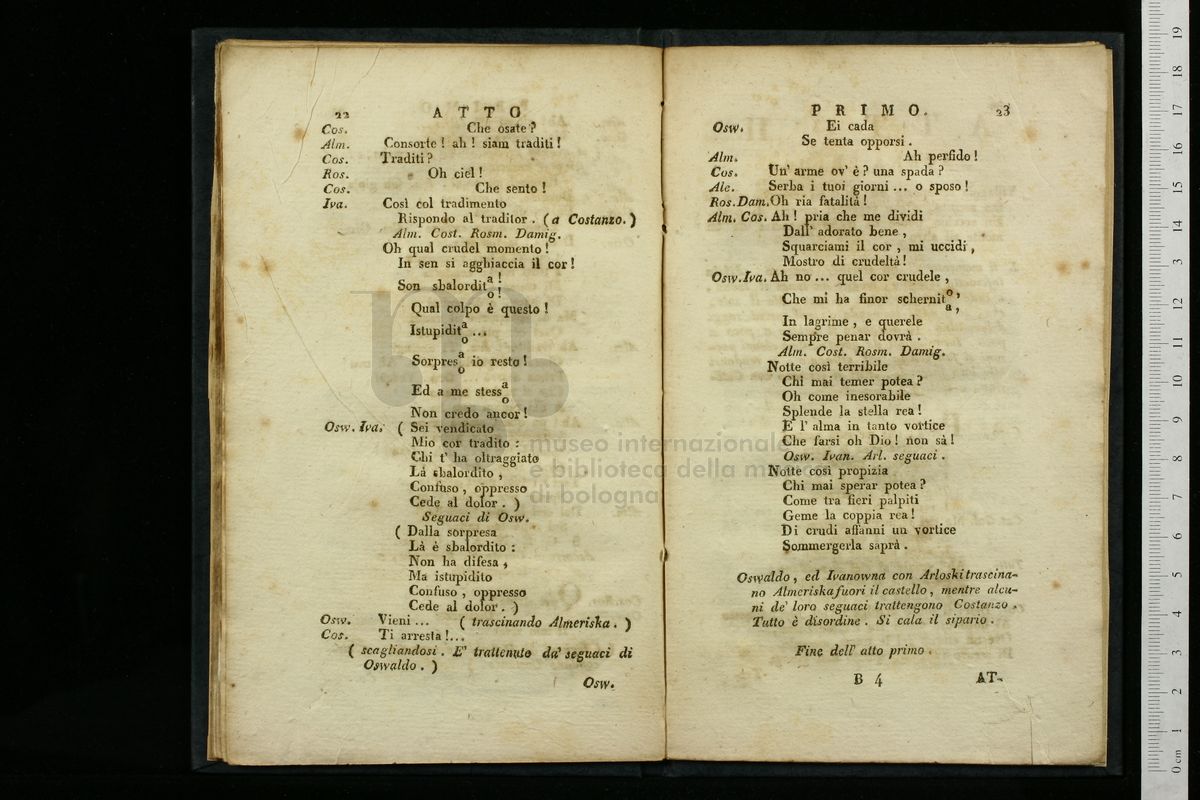 22 ATTO
Cos. Che osate?
Alm. Consorte! ah! siam traditi!
Cos. Traditi?
Ros. Oh ciel!
Cos. Che sento!
Iva. Così col tradimento
Rispondo al traditor. (a Costanzo.)
Alm. Cost. Rosm. Damig.
Oh qual crudel momento!
In sen si agghiaccia il cor!
Son sbalordit a! o!
Qual colpo è questo!
Istupidit a o ...
Sorpres a o io resto!
Ed a me stess a o
Non credo ancor!
Osw. Iva. ( Sei vendicato
Mio cor tradito:
Chi t' ha oltraggiato
Là sbalordito,
Confuso, oppresso
Cede al dolor. )
Seguaci di Osw.
( Dalla sorpresa
Là è sbalordito:
Non ha difesa,
Ma istupidito
Confuso, oppresso
Cede al dolor. )
Osw. Vieni ... ( trascinando Almeriska. )
Cos. Ti arresta!...
( scagliandosi. E' trattenuto da' seguaci di
Oswaldo. )
Osw.
PRIMO. 23
Osw. Ei cada
Se tenta opporsi.
Alm. Ah perfido!
Cos. Un' arme ov' è? una spada?
Ale. Serba i tuoi giorni ... o sposo!
Ros. Dam. Oh ria fatalità!
Alm. Cos. Ah! pria che me dividi
Dall' adorato bene,
Squarciami il cor, mi uccidi,
Mostro di crudeltà!
Osw. Iva. Ah no ... quel cor crudele,
Che mi ha finor schernit o, a,
In lagrime, e querele
Sempre penar dovrà.
Alm. Cost. Rosm. Damig.
Notte così terribile
Chi mai temer potea?
Oh come inesorabile
Splende la stella rea!
E l' alma in tanto vortice
Che farsi oh Dio! non sà!
Osw. Ivan. Arl. seguaci.
Notte così propizia
Chi mai sperar potea?
Come tra fieri palpiti
Geme la coppia rea!
Di crudi affanni un vortice
Sommergerla saprà.
Oswaldo, ed Ivanowna con Arloski trascina-
no Almeriska fuori il castello, mentre alcu-
ni de' loro seguaci trattengono Costanzo.
Tutto è disordine. Si cala il sipario.
Fine dell' atto primo.
B 4 AT-
museo internazionale
e biblioteca della musica
di bologna
0 cm 1 2 3 4 5 6 7 8 9 10 11 12 13 14 15 16 17 18 19